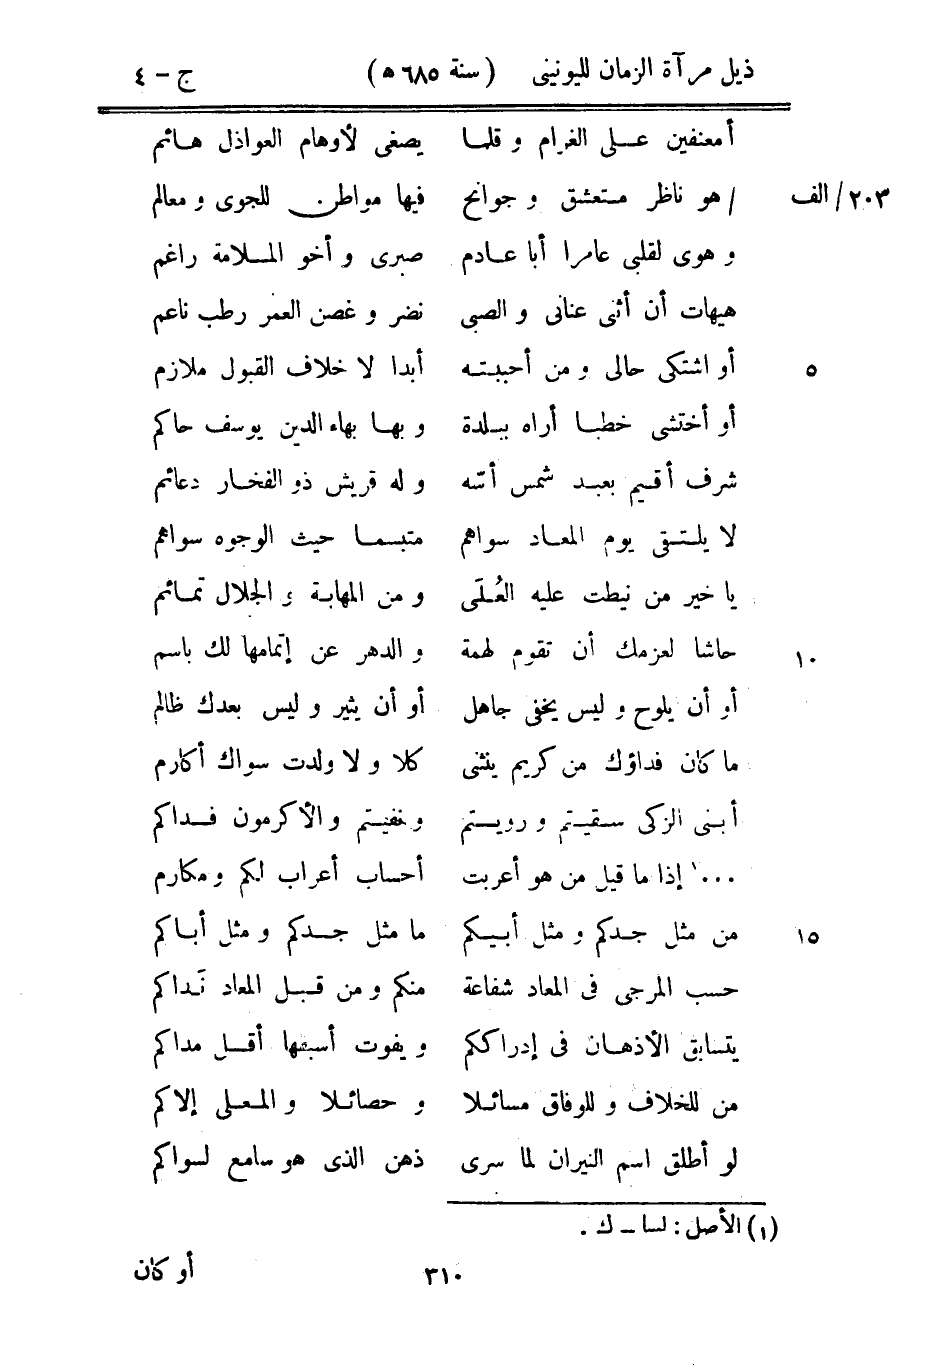 ذيل مرآة الزمان لليونينى (سنة ٦٨٥ ه) ج - ٤
أمعنفين على الغرام و قلما يصغى لأوهام العواذل هائم
٢٠٣/ الف / هو ناظر متعشق و جوانح فيها مواطن للجوى و معالم
و هوى لقلبى عامرا أبا عادم صبرى و أخو الملامة راغم
هيهات أن أثنى عنانى و الصبى نضر و غصن العمر رطب ناعم
٥ أو اشتكى حالى و من أحببته أبدا لا خلاف القبول ملازم
أو أختشى خطبا أراه ببلدة و بها بهاء الدين يوسف حاكم
شرف أقيم بعبد شمس أسّه و له قريش ذو الفخار دعائم
لا يلتقى يوم المعاد سواهم متبسما حيث الوجوه سواهم
يا خير من نيطت عليه العُلَى و من المهابة و الجلال تمائم
١٠ حاشا لعزمك أن تقوم لهمة و الدهر عن إتمامها لك باسم
أو أن يلوح و ليس يخفى جاهل أو أن يثير و ليس بعدك ظالم
ما كان فداؤك من كريم ينثنى كلا و لا ولدت سواك أكارم
أبنى الزكى سقيتم و رويتم و نفيتم و الأكرمون فداكم
...١ إذا ما قيل من هو أعربت أحساب أعراب لكم و مكارم
١٥ من مثل جدكم و مثل أبيكم ما مثل جدكم و مثل أباكم
حسب المرجى فى المعاد شفاعة منكم و من قبل المعاد نَداكم
يتسابق الأذهان فى إدراككم و يفوت أسبقها أقل مداكم
من للخلاف و للوفاق مسائلا و حصائلا و المعلى إلاكم
لو أطلق اسم النيران لما سرى ذهن الذى هو سامع لسواكم
(١) الأصل : لسا - ك .
٣١٠ أو كان